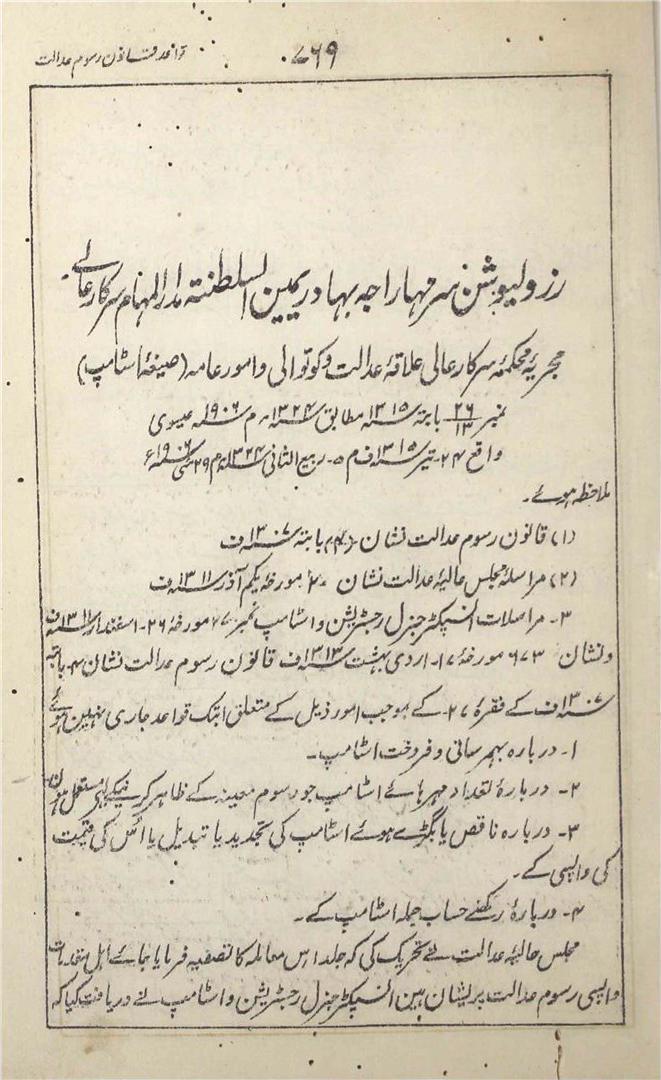 قواعد قانون رسوم عدالت
۷۶۹
رزولیوشن سر مہاراجہ بہادر یمین السلطنتہ مدار المہام سرکار عالے
مجریۂ محکمۂ سرکار عالی علاقۂ عدالت و کوتوالی و امور عامہ (صیغۂ اسٹامپ)
نمبر ۲۶/۱۳ بابتہ سنہ ۱۳۱۵ مطابق سنہ ۱۳۲۴ ھ م سنہ ۱۹۰۶ عیسوی
واقع ۲۴۔ تیر سنہ ۱۳۱۵ ف م ۵۔ ربیع الثانی سنہ ۱۳۲۴ھ م ۲۹ مئی سنہ ۱۹۰۶ء
ملاحظہ ہوئے۔
(۱) قانون رسوم عدالت نشان (۴) بابتہ سنہ ۱۳۰۷ ف
(۲) مراسلۂ مجلس عالیۂ عدالت نشان ۲۰ مورخۂ یکم آذر سنہ ۱۳۱۱ ف
۳۔ مراسلات انسپکٹر جنرل رجسٹریشن و اسٹامپ نمبر ۶۷۰ مورخۂ ۲۶۔ اسفندار سنہ ۱۳۱۱ ف
و نشان ۶۷۳ مورخۂ ۱۷۔ اردی بہشت سنہ ۱۳۱۳ ف قانون رسوم عدالت نشان ۴۔ بابتہ
سنہ ۱۳۰۷ ف کے فقرۂ ۲۷۔ کے بموجب امور ذیل کے متعلق ابتک قواعد جاری نہین ہوئے
۱۔ دربارہ بہمرسانی و فروخت اسٹامپ۔
۲۔ دربارۂ تعداد مہر ہائے اسٹامپ جو رسوم معینہ کے ظاہر کرنیکے لئے مستعمل ہون
۳۔ دربارہ ناقص یا بگڑے ہوئے اسٹامپ کی تجدید یا تبدیل یا اُس کی قیمت
کی واپسی کے۔
۴۔ دربارۂ رکھنے حساب جملہ اسٹامپ کے۔
مجلس عالیۂ عدالت نے تحریک کی کہ جلد اس معاملہ کا تصفیہ فرمایا جائے اہل مقدمات
واپسی رسوم عدالت پریشان ہین انسپکٹر جنرل رجسٹریشن و اسٹامپ نے دریافت کیا کہ